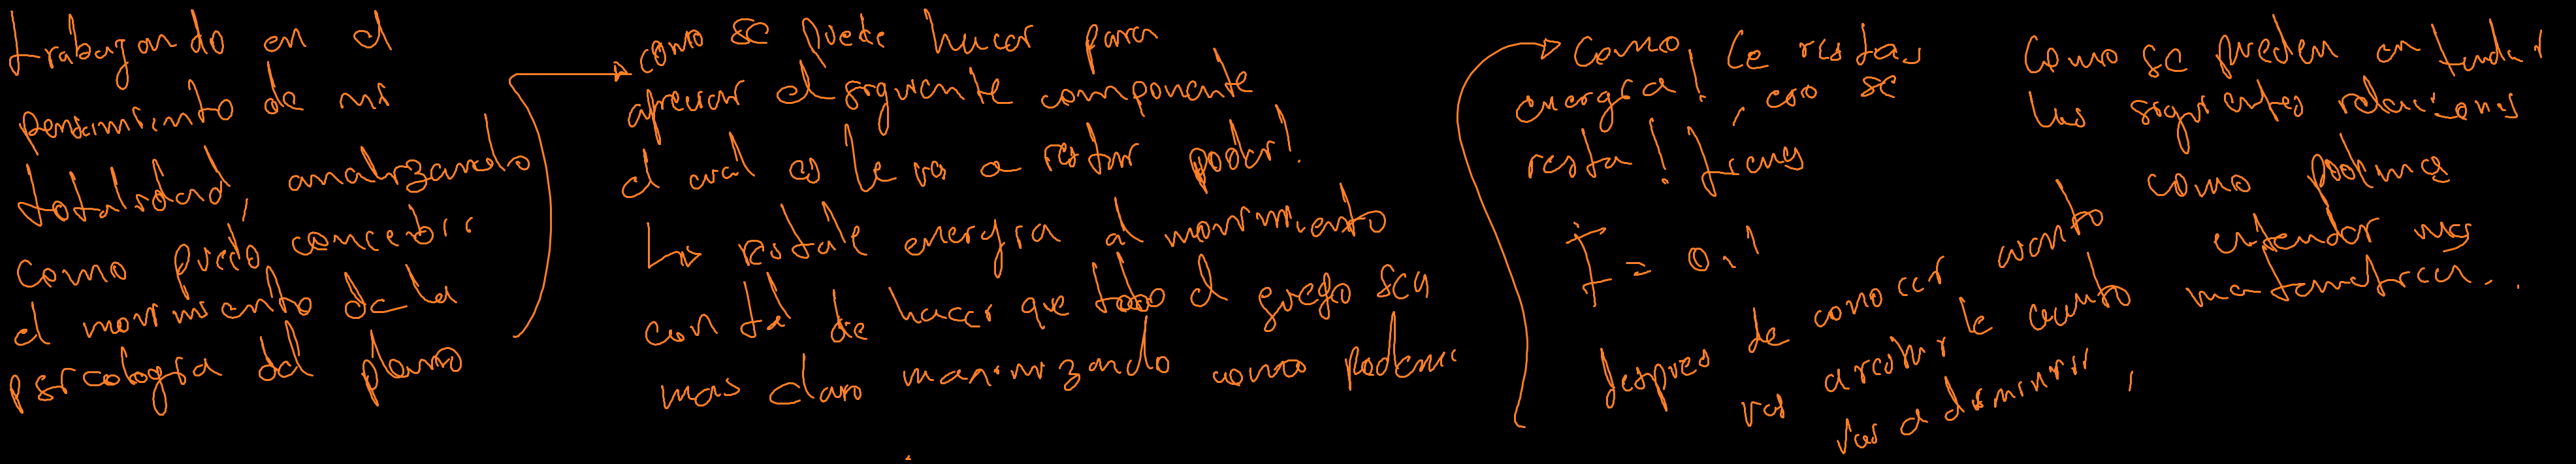 trabajando en el
pensamiento de mi
totalidad, analizando
como puedo concebir
el movimiento de la
psicología del plano
como se puede hacer para
apreciar el siguiente componente
el cual es le vas a restar poder!
restale energia al movimiento
con tal de hacer que todo el juego sea
mas claro maximizando como podemos
Como le restas
energia! , eso se
resta! tienes
F = 0.1
despues de conocer cuanto
vas a restarle cuanto
vas a disminuir,
Como se pueden entender
las siguientes relaciones
como podemos
entender mas
matematicas..